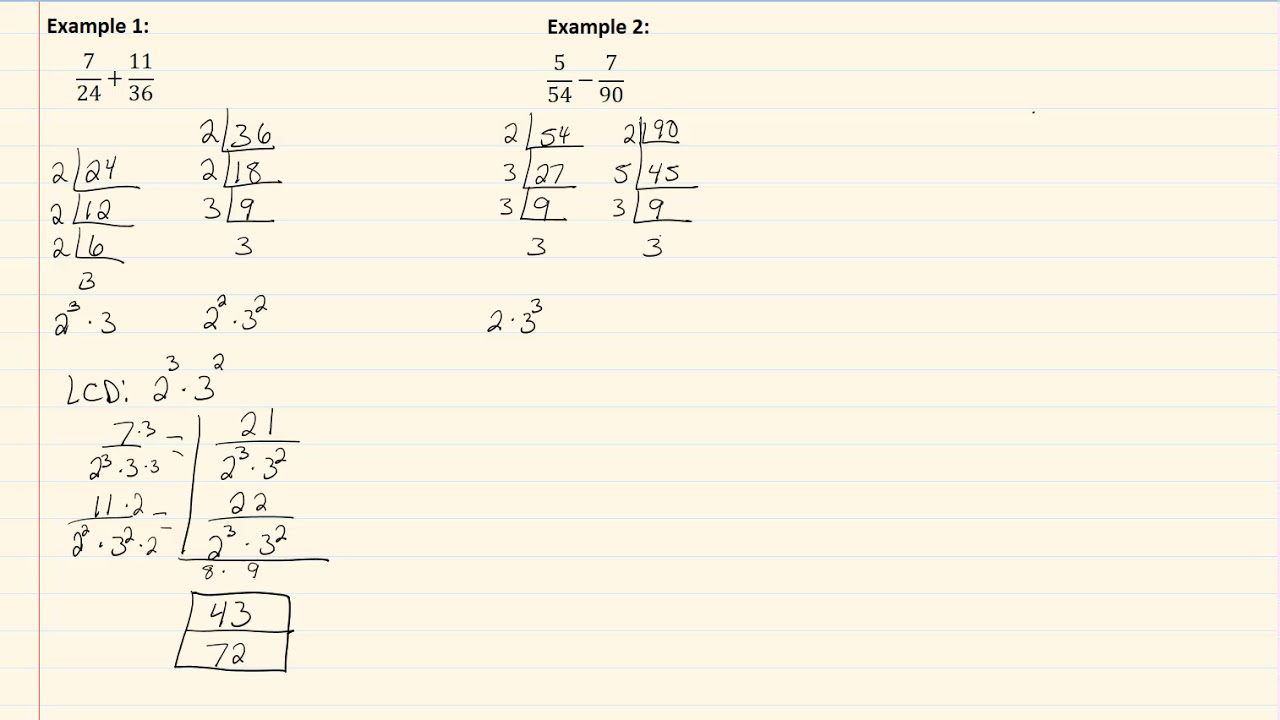 Example 1:
7/24 + 11/36
2 | 36
2 | 24
2 | 18
2 | 12
3 | 9
2 | 6
3
3
2³ · 3
2² · 3²
LCD: 2³ · 3²
7·3 / 2³ · 3 · 3 = 21 / 2³ · 3²
11·2 / 2² · 3² · 2 = 22 / 2³ · 3²
8 · 9
43/72
Example 2:
5/54 − 7/90
2 | 54
2 | 90
3 | 27
5 | 45
3 | 9
3 | 9
3
3
2 · 3³